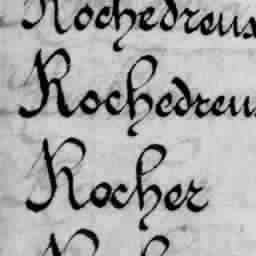 Rochedreux
Rochedreu
Rocher